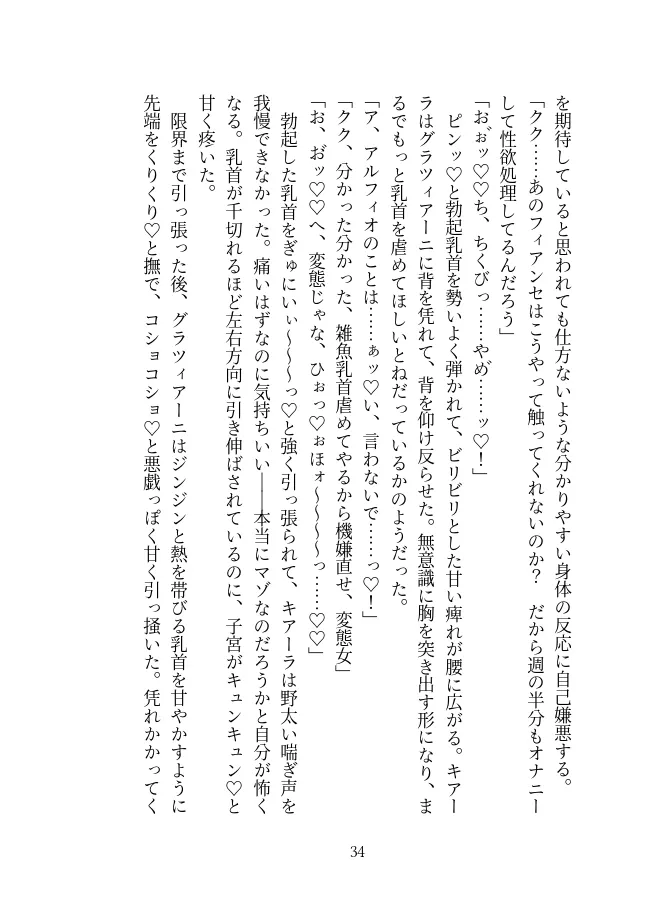 を期待していると思われても仕方ないような分かりやすい身体の反応に自己嫌悪する。
「クク……あのフィアンセはこうやって触ってくれないのか？　だから週の半分もオナニー
して性欲処理してるんだろう」
「おぉ゛ッ♡♡ち、ちくびっ……やめ……ッ♡！」
　ピンッ♡と勃起乳首を勢いよく弾かれて、ビリビリとした甘い痺れが腰に広がる。キアー
ラはグラツィアーニに背を凭れて、背を仰け反らせた。無意識に胸を突き出す形になり、ま
るでもっと乳首を虐めてほしいとねだっているかのようだった。
「ア、アルフィオのことは……ぁッ♡い、言わないで……っ♡！」
「クク、分かった分かった、雑魚乳首虐めてやるから機嫌直せ、変態女」
「お、お゛ッ♡♡へ、変態じゃな、ひぉっ♡ぉほォ〜〜〜〜っ……♡♡」
　勃起した乳首をぎゅにいぃ〜〜〜っ♡と強く引っ張られて、キアーラは野太い喘ぎ声を
我慢できなかった。痛いはずなのに気持ちいい――本当にマゾなのだろうかと自分が怖く
なる。乳首が千切れるほど左右方向に引き伸ばされているのに、子宮がキュンキュン♡と
甘く疼いた。
　限界まで引っ張った後、グラツィアーニはジンジンと熱を帯びる乳首を甘やかすように
先端をくりくり♡と撫で、コショコショ♡と悪戯っぽく甘く引っ掻いた。凭れかかってく
34